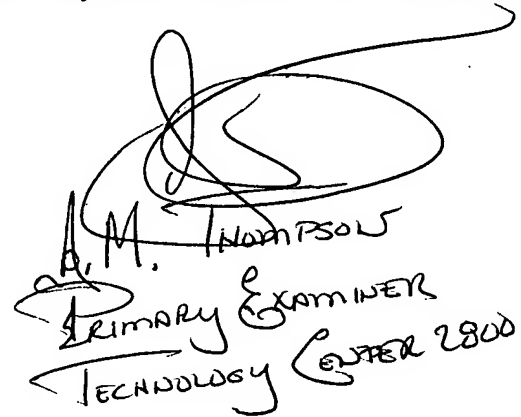 A. M. THOMPSON
PRIMARY EXAMINER
TECHNOLOGY CENTER 2800